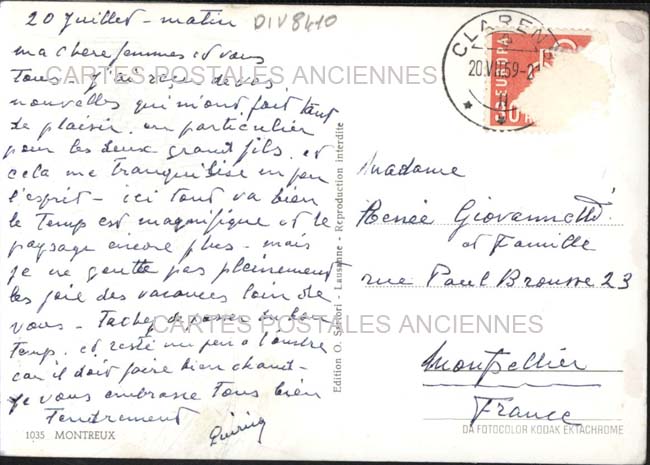 20 Juillet - matin
DIV8410
ma chere femmes et vous
Tous - J'ai reçu de vos
nouvelles qui m'ont fait tant
de plaisir, en particulier
pour les deux grands fils, et
cela me tranquilise un peu
l'esprit - ici tout va bien
le Temps est magnifique et le
paysage encore plus - mais
je ne goutte pas pleinement
les joie des vacances loin de
vous - Tachez de passer du bon
Temps, et reste un peu a l'ombre
car il doit faire bien chaud -
je vous embrasse Tous bien
Tendrement
1035 MONTREUX
Edition O. Sartori - Lausanne - Reproduction interdite
CLARENS
20.VII.59-
EUROPA
Madame
Renée Giovannetti
et Famille
rue Paul Brousse 23
Montpellier
France
DA FOTOCOLOR KODAK EKTACHROME
CARTES POSTALES ANCIENNES
CARTES POSTALES ANCIENNES